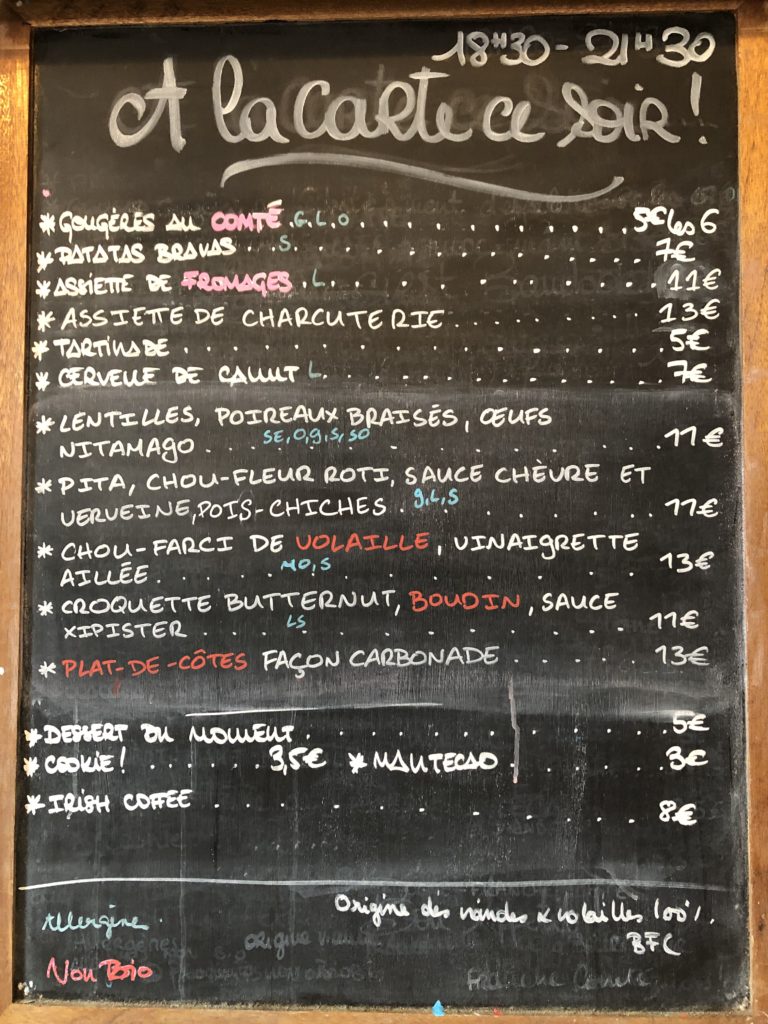 18H30 - 21H30
A la carte ce soir !
* GOUGÈRES AU COMTÉ . G. L. O . . . . . . . . . . 5€ les 6
* PATATAS BRAVAS . . . S. . . . . . . . . . . 7€
* ASSIETTE DE FROMAGES . L . . . . . . . . . 11€
* ASSIETTE DE CHARCUTERIE . . . . . . . . 13€
* TARTINADE . . . . . . . . . . . . . . . 5€
* CERVELLE DE CANUT L . . . . . . . . . . . 7€
* LENTILLES, POIREAUX BRAISÉS, ŒUFS
NITAMAGO . . . SE, O, g, S, SO . . . . . . . . 11€
* PITA, CHOU-FLEUR ROTI, SAUCE CHÈVRE ET
VERVEINE, POIS-CHICHES . g, L, S . . . . . . 11€
* CHOU-FARCI DE VOLAILLE, VINAIGRETTE
AILLÉE . . . . . MO, S . . . . . . . . . 13€
* CROQUETTE BUTTERNUT, BOUDIN, SAUCE
XIPISTER . . . . LS . . . . . . . . . 11€
* PLAT-DE-CÔTES FAÇON CARBONADE . . . . . . 13€
* DESSERT DU MOMENT . . . . . . . . . . . 5€
* COOKIE ! . . . . . . 3,5€ * MANTECAO . . . . . . 3€
* IRISH COFFEE . . . . . . . . . . . . . 8€
Allergène .
Origine des viandes & volailles 100%
BFC
Non Bio